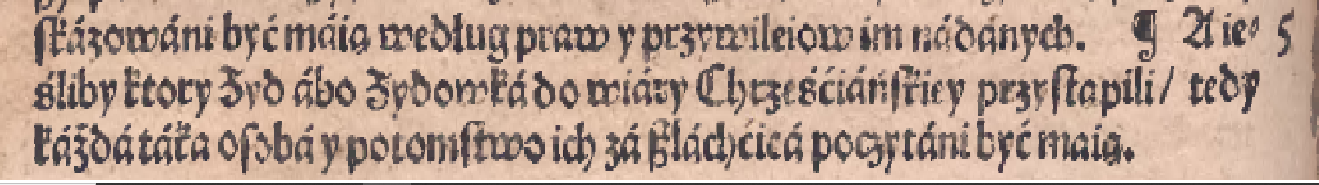 skázowáni być máią według praw y przywileiow im nádánych. ¶ A ies 5
śliby ktory Żyd ábo Żydowká do wiáry Chrześćiáńskiey przystąpili/ tedy
káżda táka osobá y potomstwo ich zá szláchćicá poczytáni być maią.